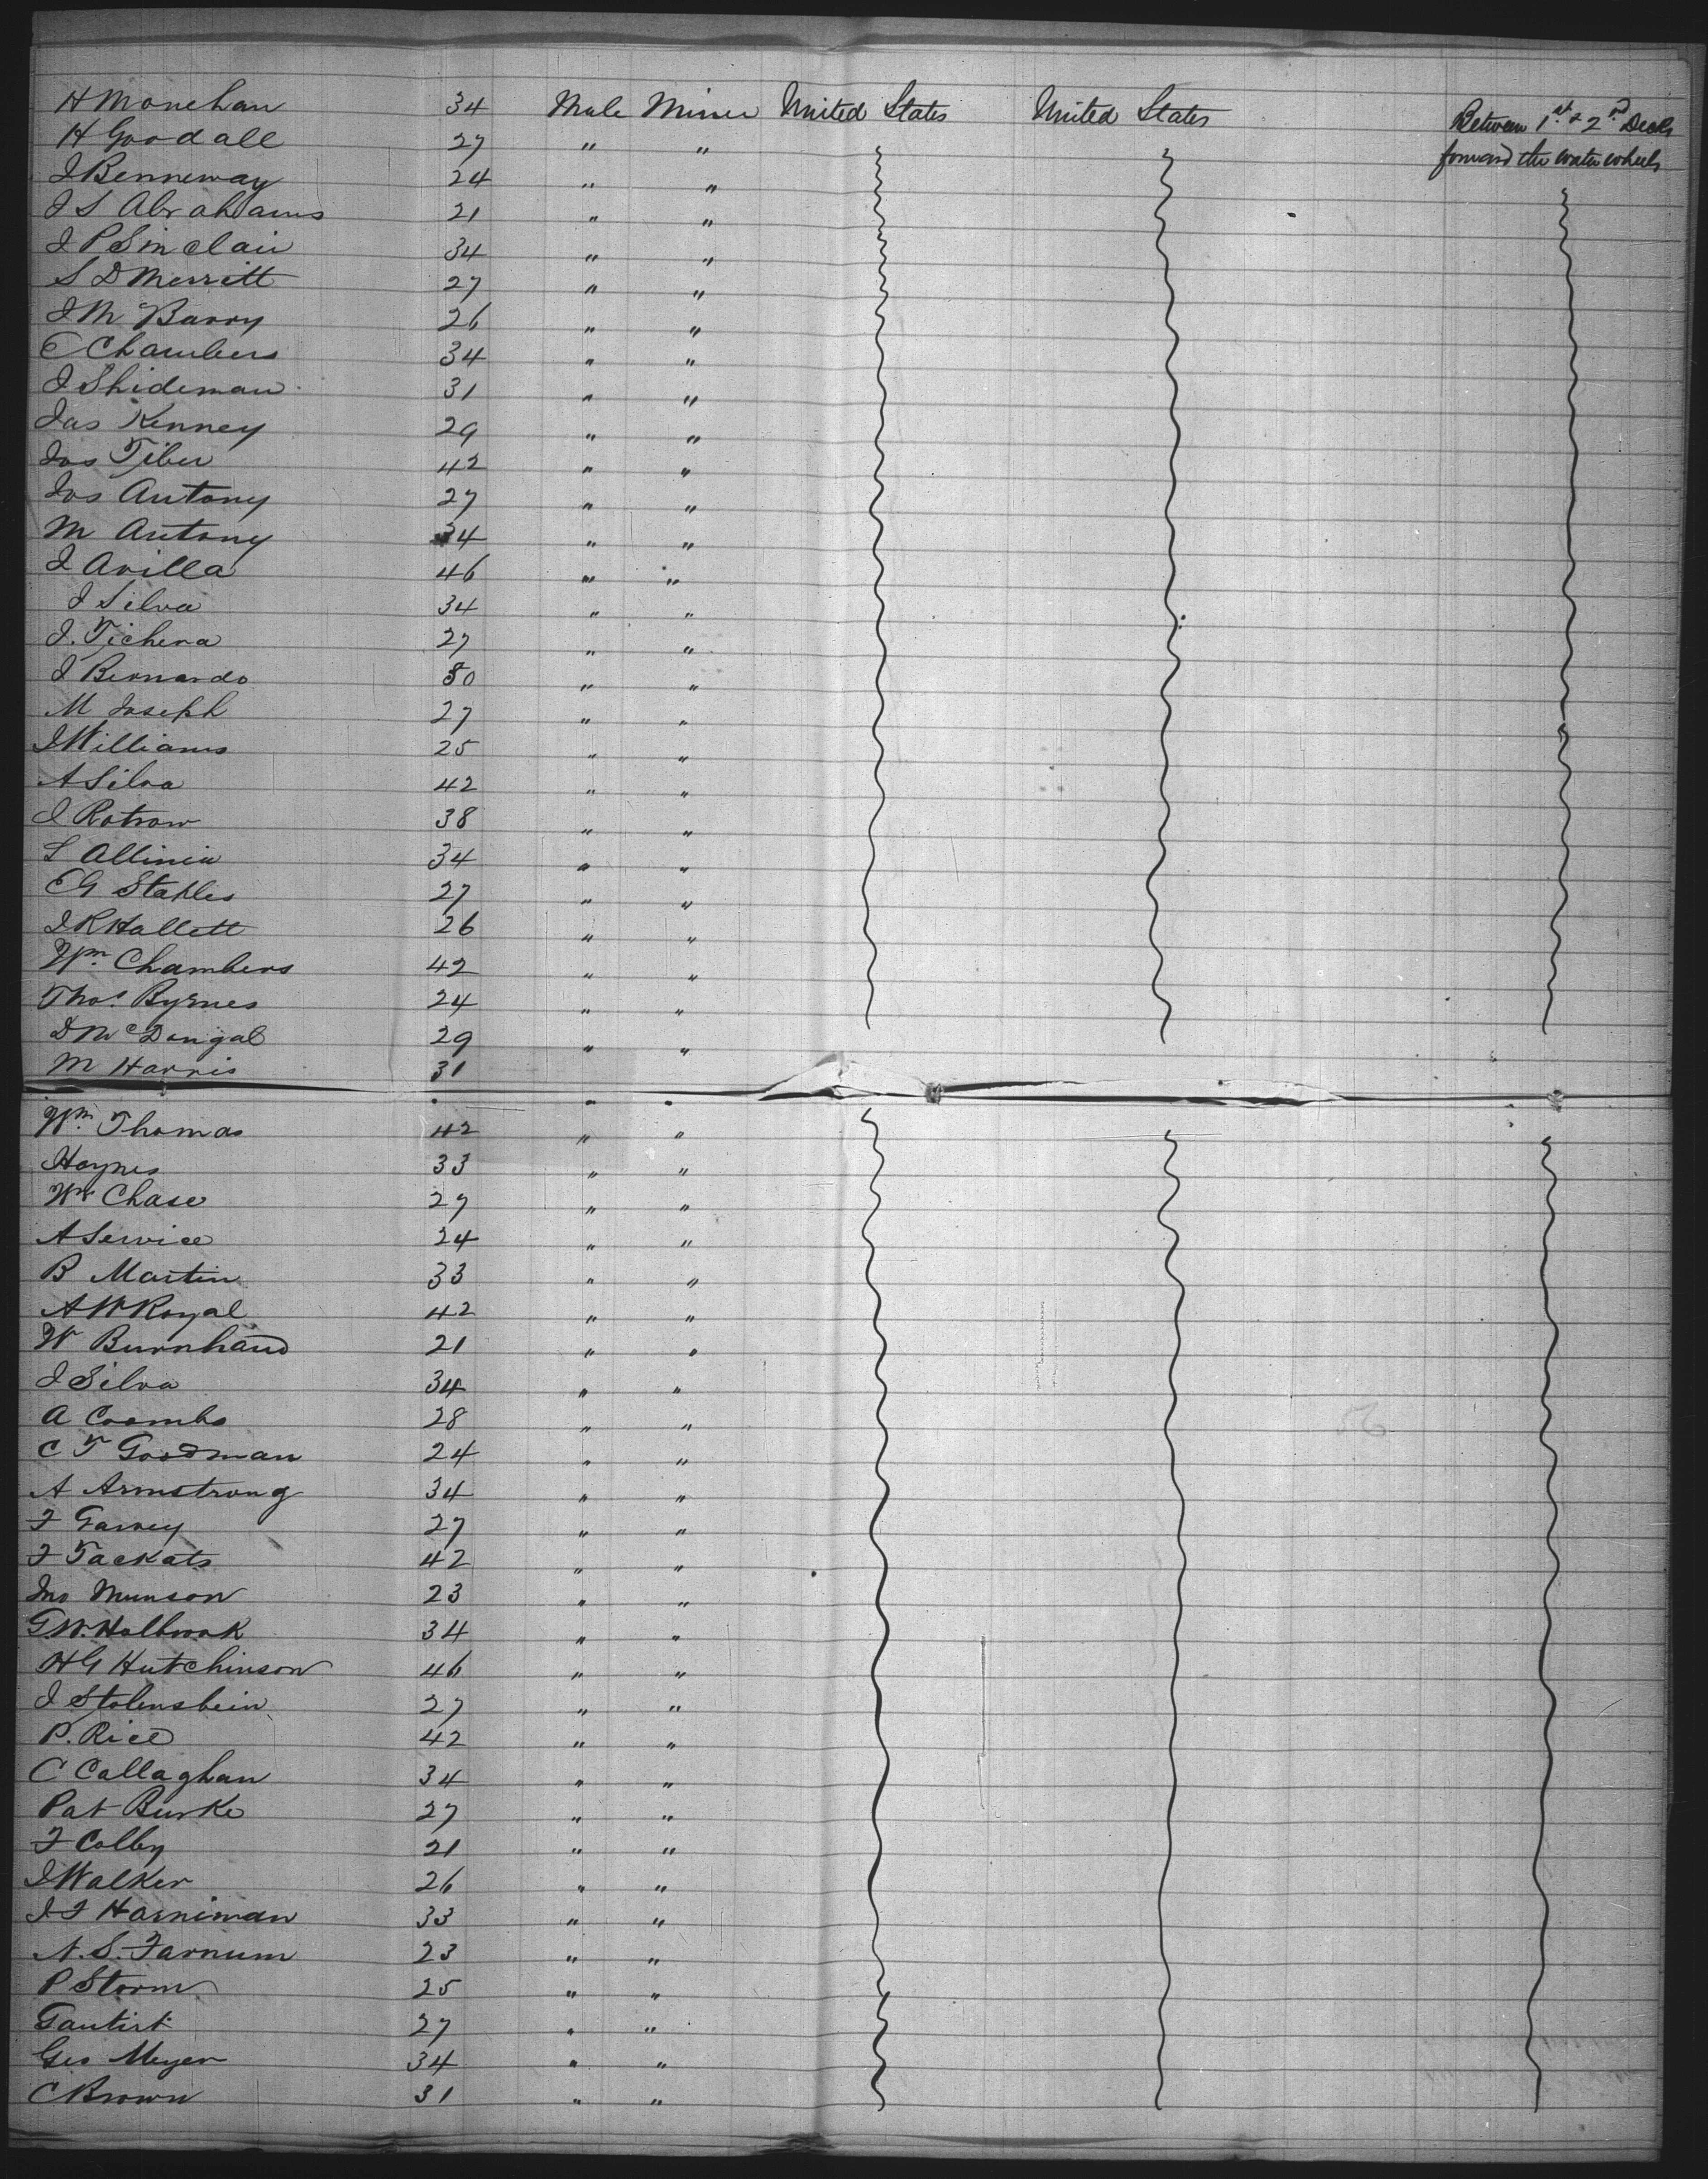 H Monehan 34 Male Miner United States United States Between 1st & 2nd Decks
H Goodall 27 " " forward the water wheels
J Benneway 24 " "
J S Abrahams 21 " "
J P Sinclair 34 " "
S D Merritt 27 " "
J M Barry 26 " "
C Chambers 34 " "
J Shideman 31 " "
Jas Kenney 29 " "
Jos Tiber 42 " "
Jos Antony 27 " "
M Antony 34 " "
J Avilla 46 " "
J Silva 34 " "
J. Tichera 27 " "
J Bernardo 30 " "
M Joseph 27 " "
J Williams 25 " "
A Silva 42 " "
J Rotrow 38 " "
S Allinia 34 " "
C G Staples 27 " "
J R Hallett 26 " "
Wm Chambers 42 " "
Thos Byrnes 24 " "
D McDongal 29 " "
M Harris 31 " "
Wm Thomas 42 " "
Haynes 33 " "
Wm Chase 27 " "
A Service 24 " "
B Martin 33 " "
A W Royal 42 " "
W Burnhand 21 " "
J Silva 34 " "
A Coombs 28 " "
C T Goodman 24 " "
A Armstrong 34 " "
F Garvey 27 " "
F Tackats 42 " "
Jno Munson 23 " "
G.W. Holbrook 34 " "
H G Hutchinson 46 " "
J Stolensbein 27 " "
P. Rice 42 " "
C Callaghan 34 " "
Pat Burke 27 " "
F Colby 21 " "
J Walker 26 " "
J F Harniman 33 " "
N. S. Farnum 23 " "
P Storm 25 " "
Gautirt 27 " "
Geo Meyer 34 " "
C Brown 31 " "